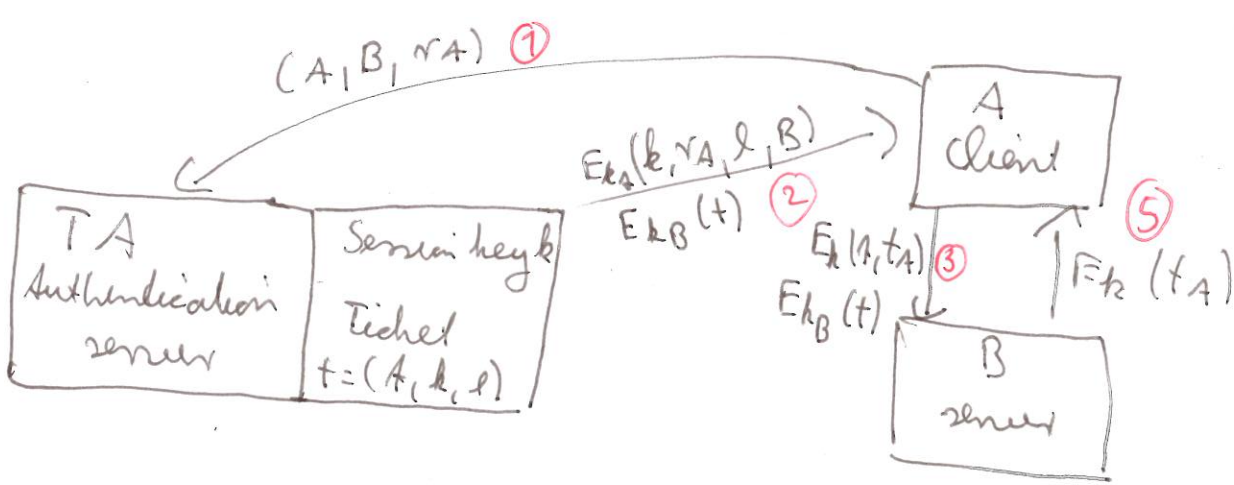 (A, B, rA) 1
E_kA(k, rA, l, B)
E_kB(t) 2
A
Client
TA
Authentication
server
Session key k
Ticket
t=(A, k, l)
E_k(A, tA) 3
E_kB(t)
5
E_k (tA)
B
server